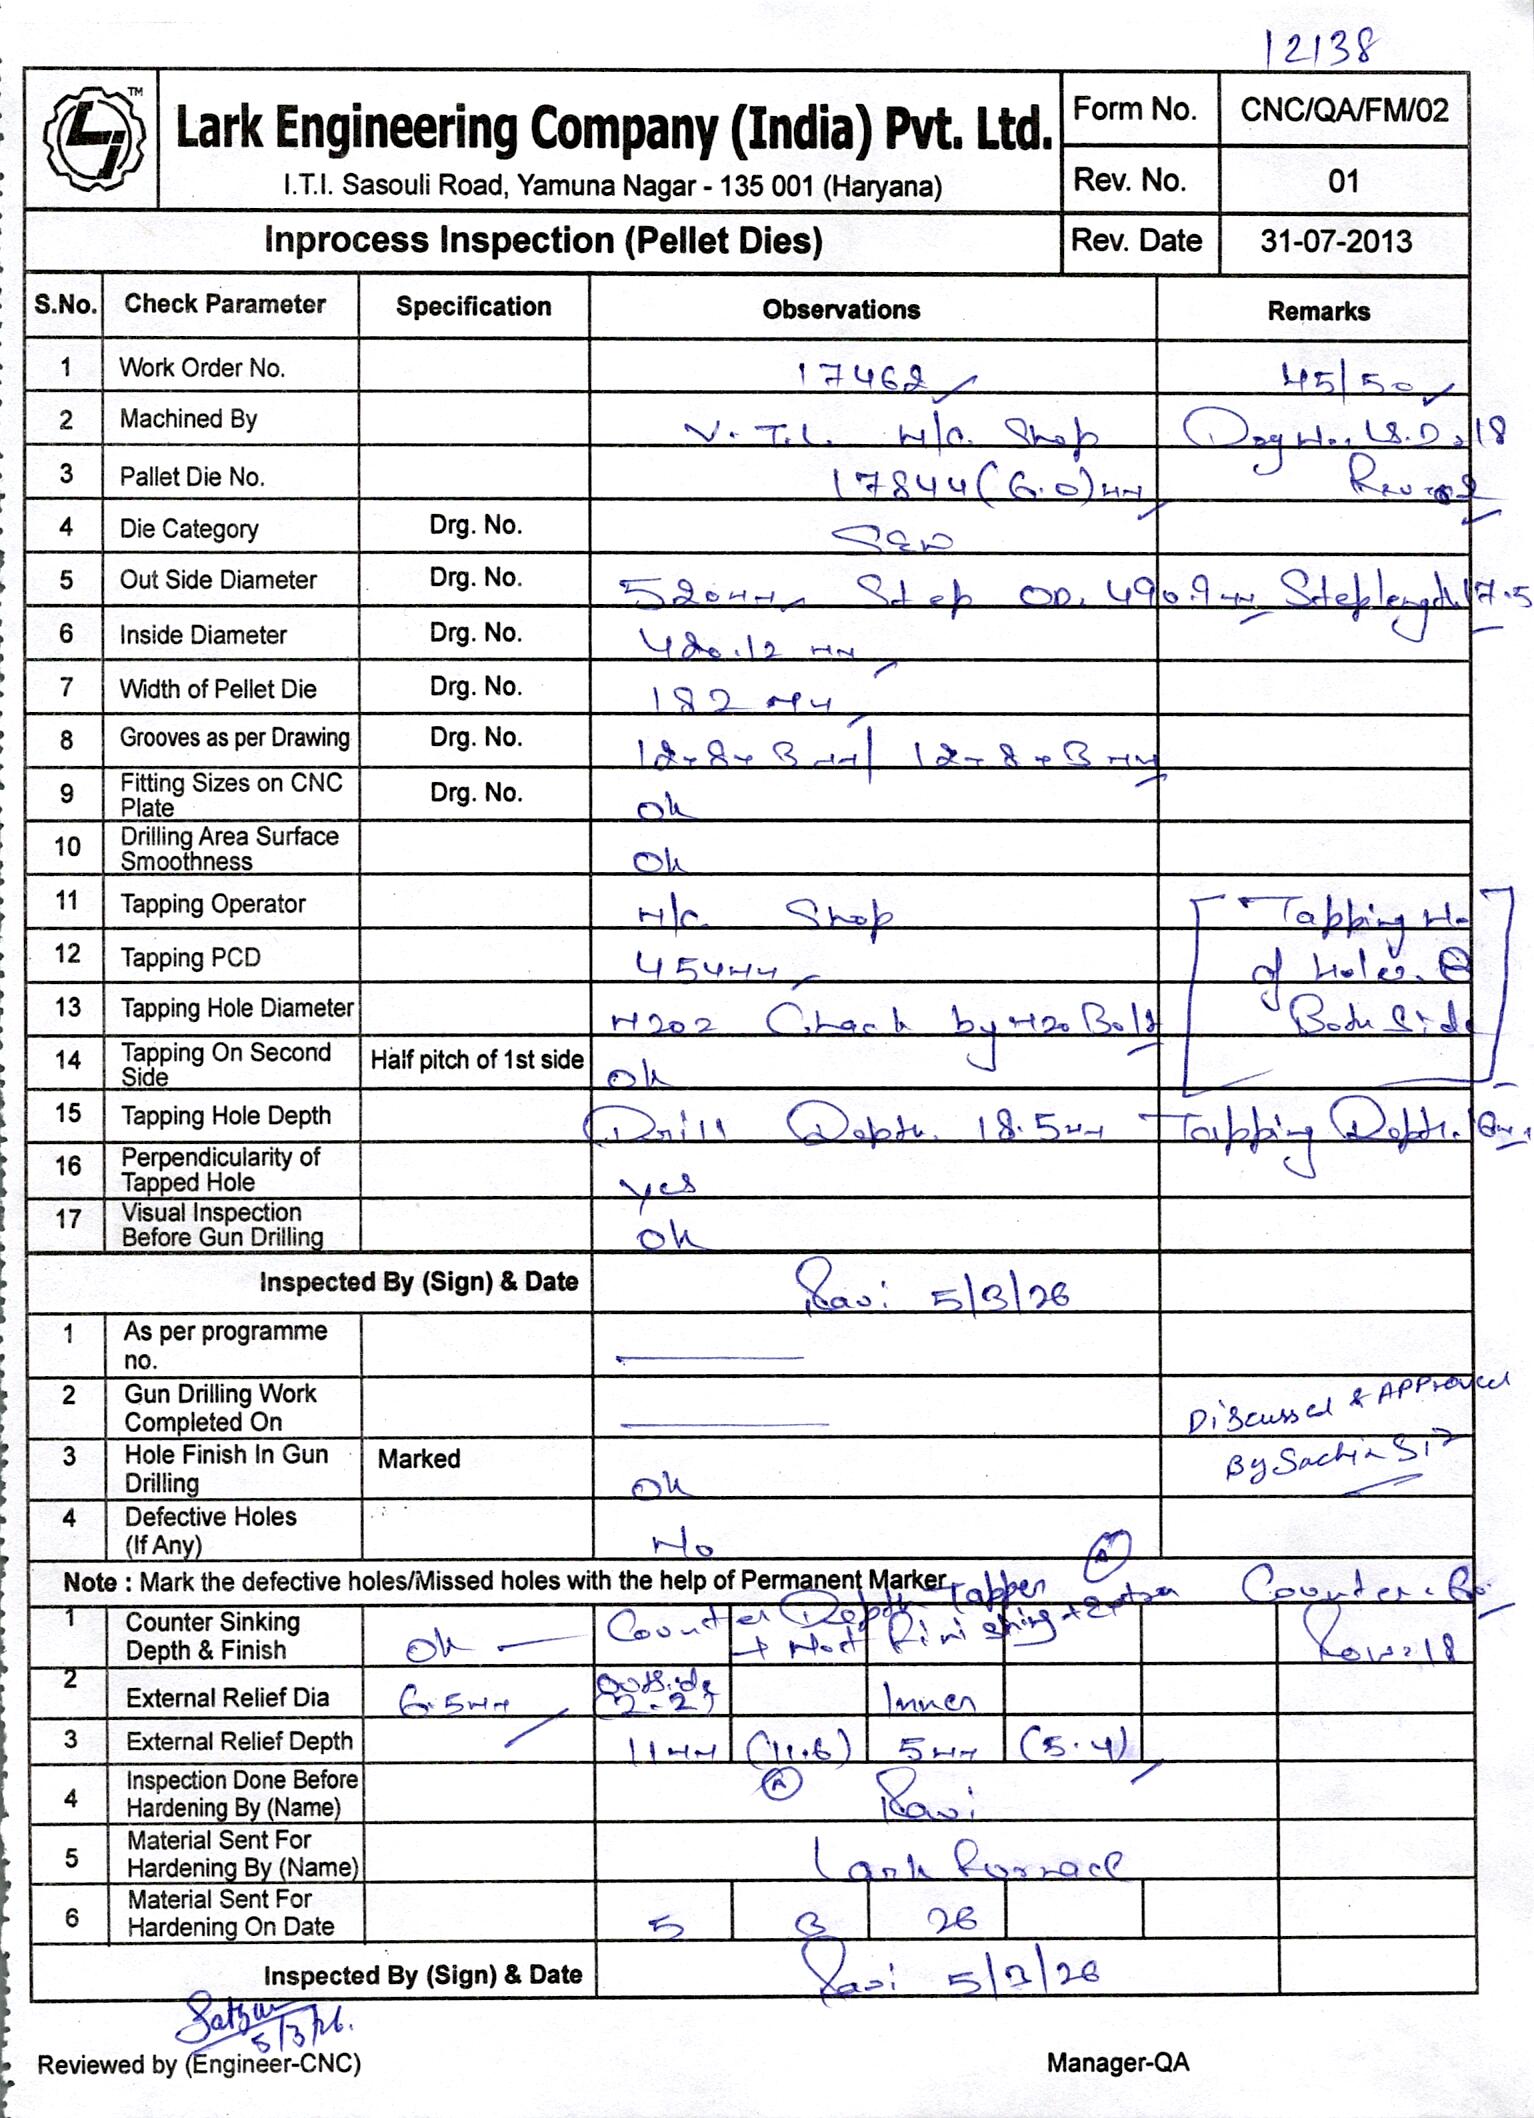 12138
TM
Lark Engineering Company (India) Pvt. Ltd.
I.T.I. Sasouli Road, Yamuna Nagar - 135 001 (Haryana)
Form No. CNC/QA/FM/02
Rev. No. 01
Inprocess Inspection (Pellet Dies) Rev. Date 31-07-2013
S.No. Check Parameter Specification Observations Remarks
1 Work Order No. 17462 45/50
2 Machined By V.T.L. M/c. Shop Drg No. LS.D.218
3 Pallet Die No. 17844 (6.0)mm
4 Die Category Drg. No.
5 Out Side Diameter Drg. No. 520mm Step OD. 490.9mm Step length 17.5
6 Inside Diameter Drg. No. 420.12 mm
7 Width of Pellet Die Drg. No. 182 mm
8 Grooves as per Drawing Drg. No. 12-8-3 mm/ 12-8-3 mm
9 Fitting Sizes on CNC Plate Drg. No. Ok
10 Drilling Area Surface Smoothness Ok
11 Tapping Operator M/c. Shop Tapping No
12 Tapping PCD 454mm of holes. 8
13 Tapping Hole Diameter M20 Check by M20 Bolt Both Side
14 Tapping On Second Side Half pitch of 1st side Ok
15 Tapping Hole Depth Drill Depth. 18.5mm Tapping Depth.
16 Perpendicularity of Tapped Hole Yes
17 Visual Inspection Before Gun Drilling Ok
Inspected By (Sign) & Date Ravi 5/3/26
1 As per programme no.
2 Gun Drilling Work Completed On Discussed & Approved
3 Hole Finish In Gun Drilling Marked Ok By Sachin Sir
4 Defective Holes (If Any) No
A
Note : Mark the defective holes/Missed holes with the help of Permanent Marker
1 Counter Sinking Depth & Finish Ok Counter Depth Tapper Counter
2 External Relief Dia 6.5mm Outside (2-2) Inner
3 External Relief Depth 11mm (11.6) 5mm (5.4)
A
4 Inspection Done Before Hardening By (Name) Ravi
5 Material Sent For Hardening By (Name) Lark Furnace
6 Material Sent For Hardening On Date 5 3 26
Inspected By (Sign) & Date Ravi 5/3/26
5/3/26.
Reviewed by (Engineer-CNC) Manager-QA